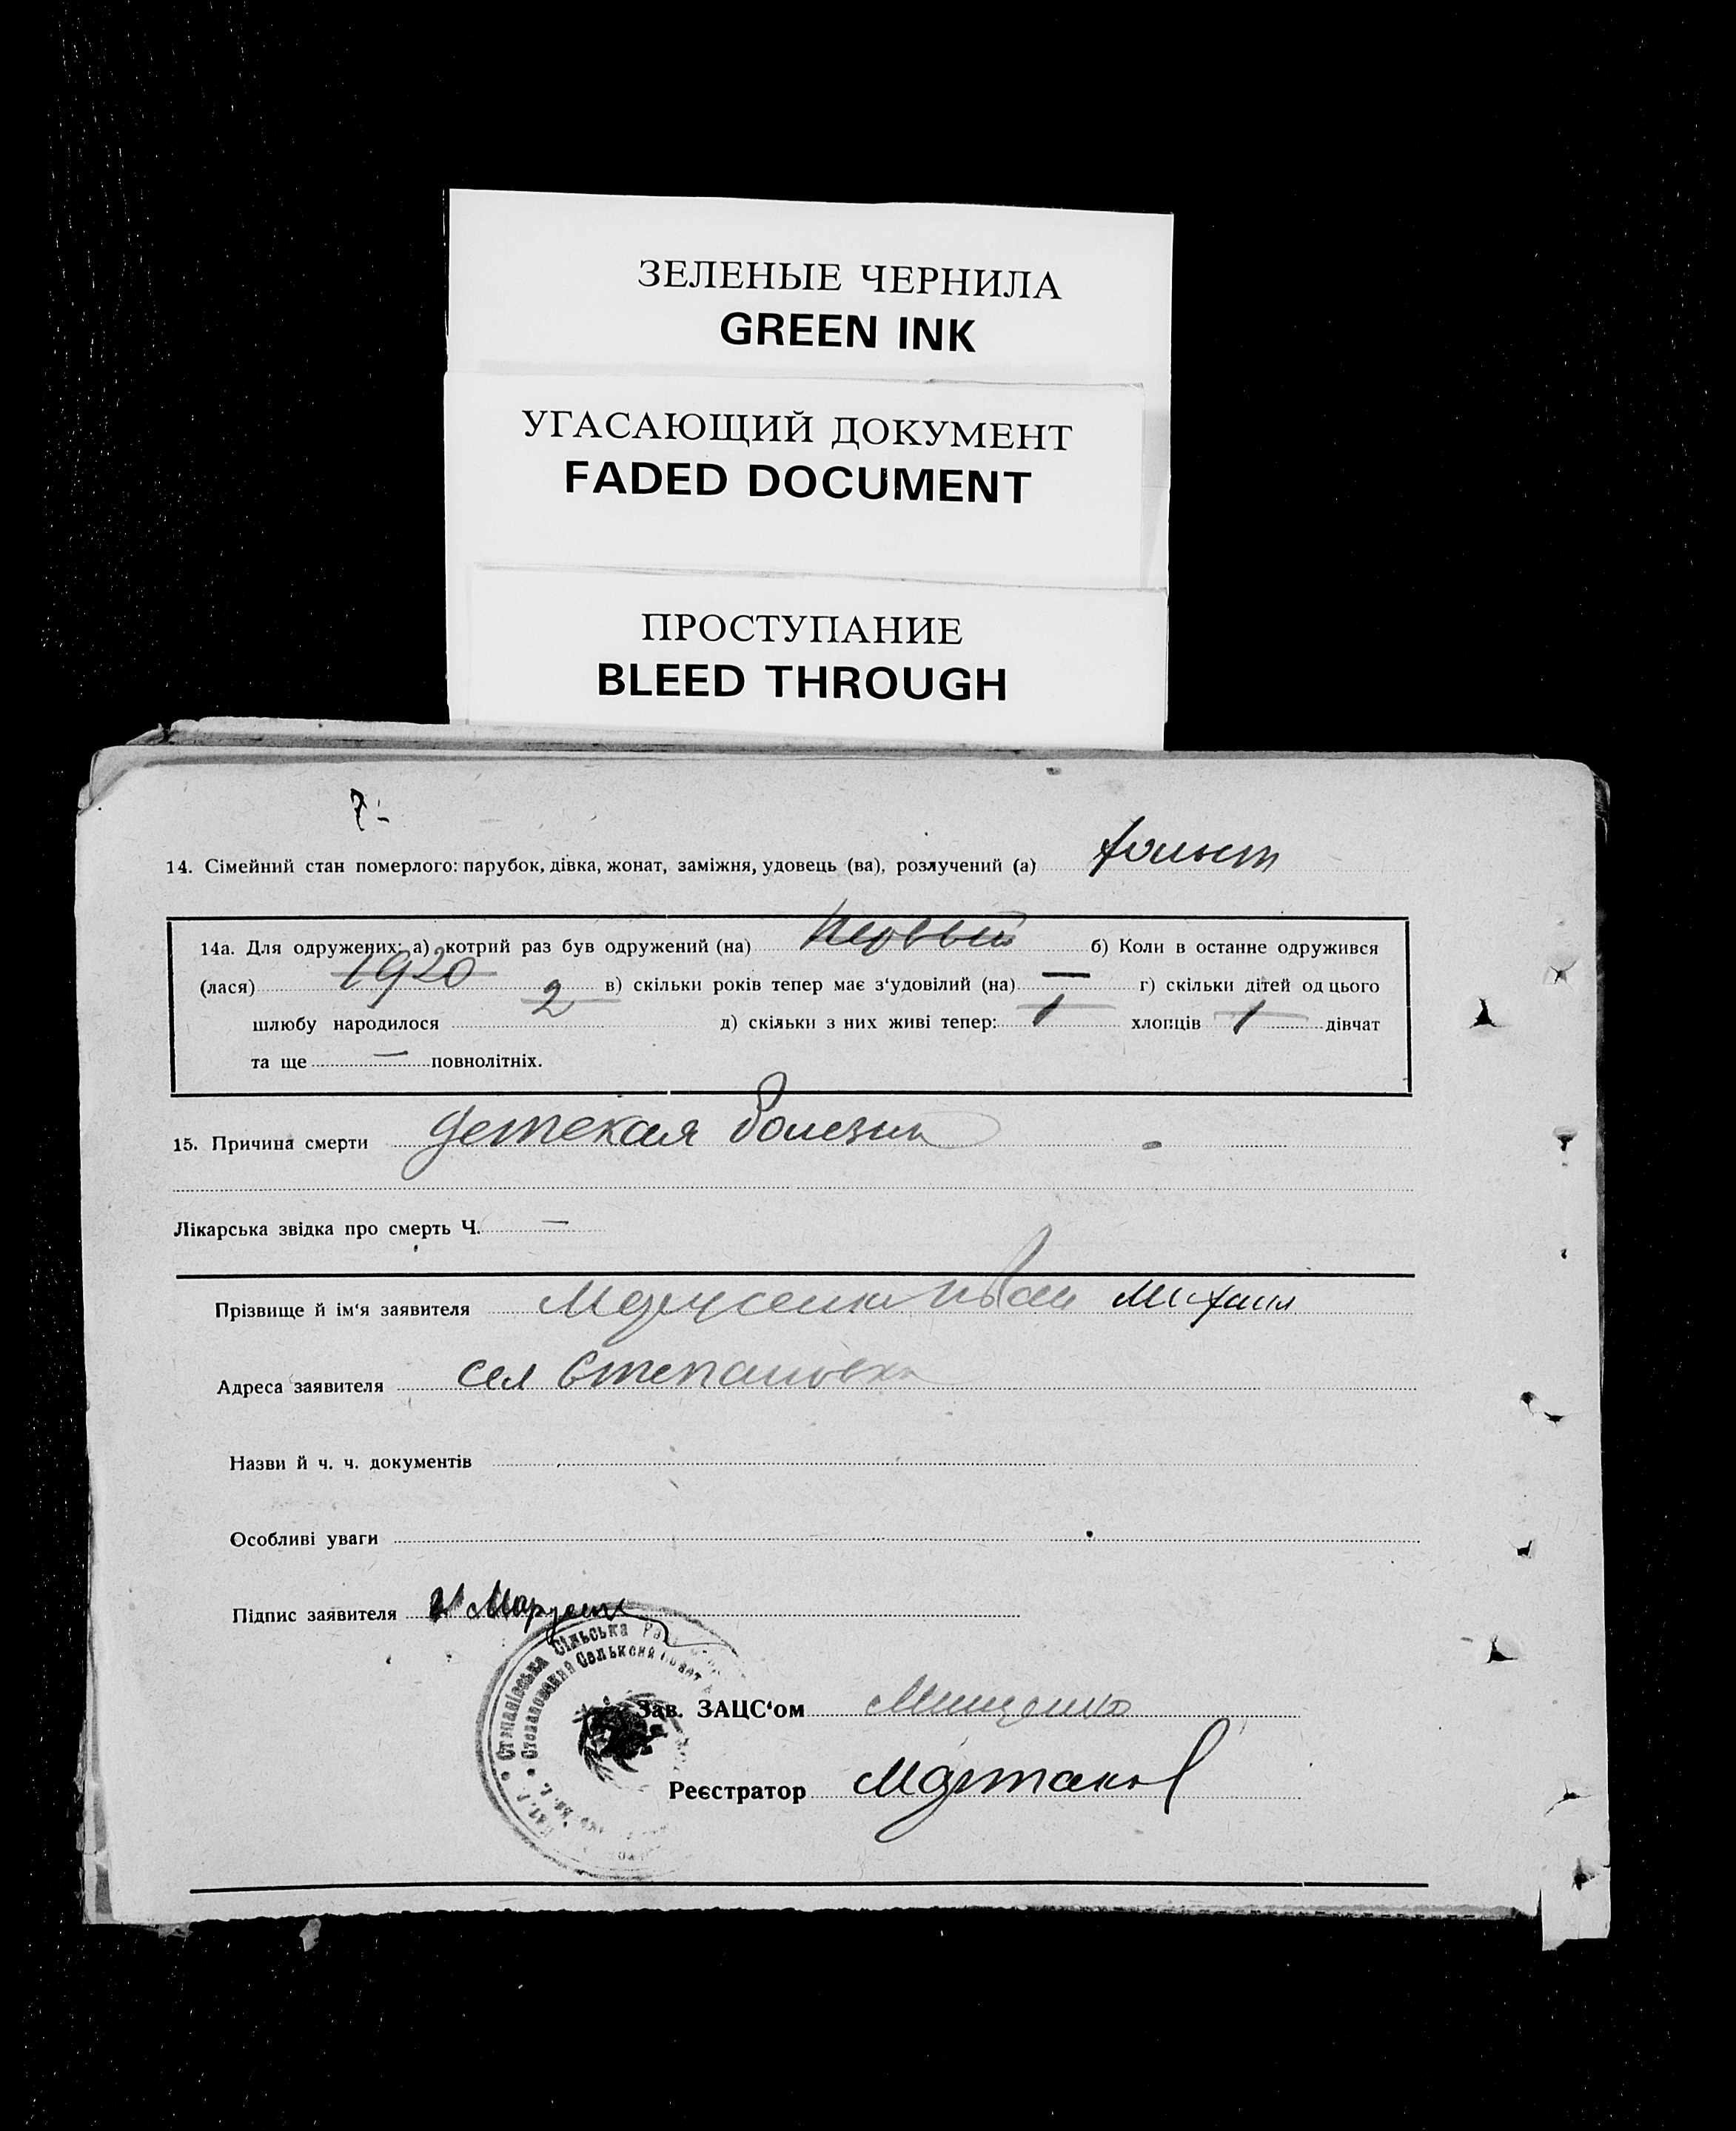 ЗЕЛЕНЫЕ ЧЕРНИЛА
GREEN INK
УГАСАЮЩИЙ ДОКУМЕНТ
FADED DOCUMENT
ПРОСТУПАНИЕ
BLEED THROUGH
14. Сімейний стан померлого: парубок, дівка, жонат, заміжня, удовець (ва), розлучений (а)
14а. Для одружених: а) котрий раз був одружений (на) Первый б) Коли в останнє одружився
(лася) 1920 в) скільки років тепер має з‘удовілий (на) — г) скільки дітей од цього
шлюбу народилося 2 д) скільки з них живі тепер: 1 хлопців 1 дівчат
та ще — повнолітніх.
15. Причина смерти детская болезнь
Лікарська звідка про смерть Ч. —
Прізвище й ім‘я заявителя Иван Михаил
Адреса заявителя сел Степановка
Назви й ч. ч. документів
Особливі уваги
Підпис заявителя
Степанівська Сільська Рада
Степановский Сельский Совет
Зав. ЗАЦС‘ом Мищенко
Реєстратор